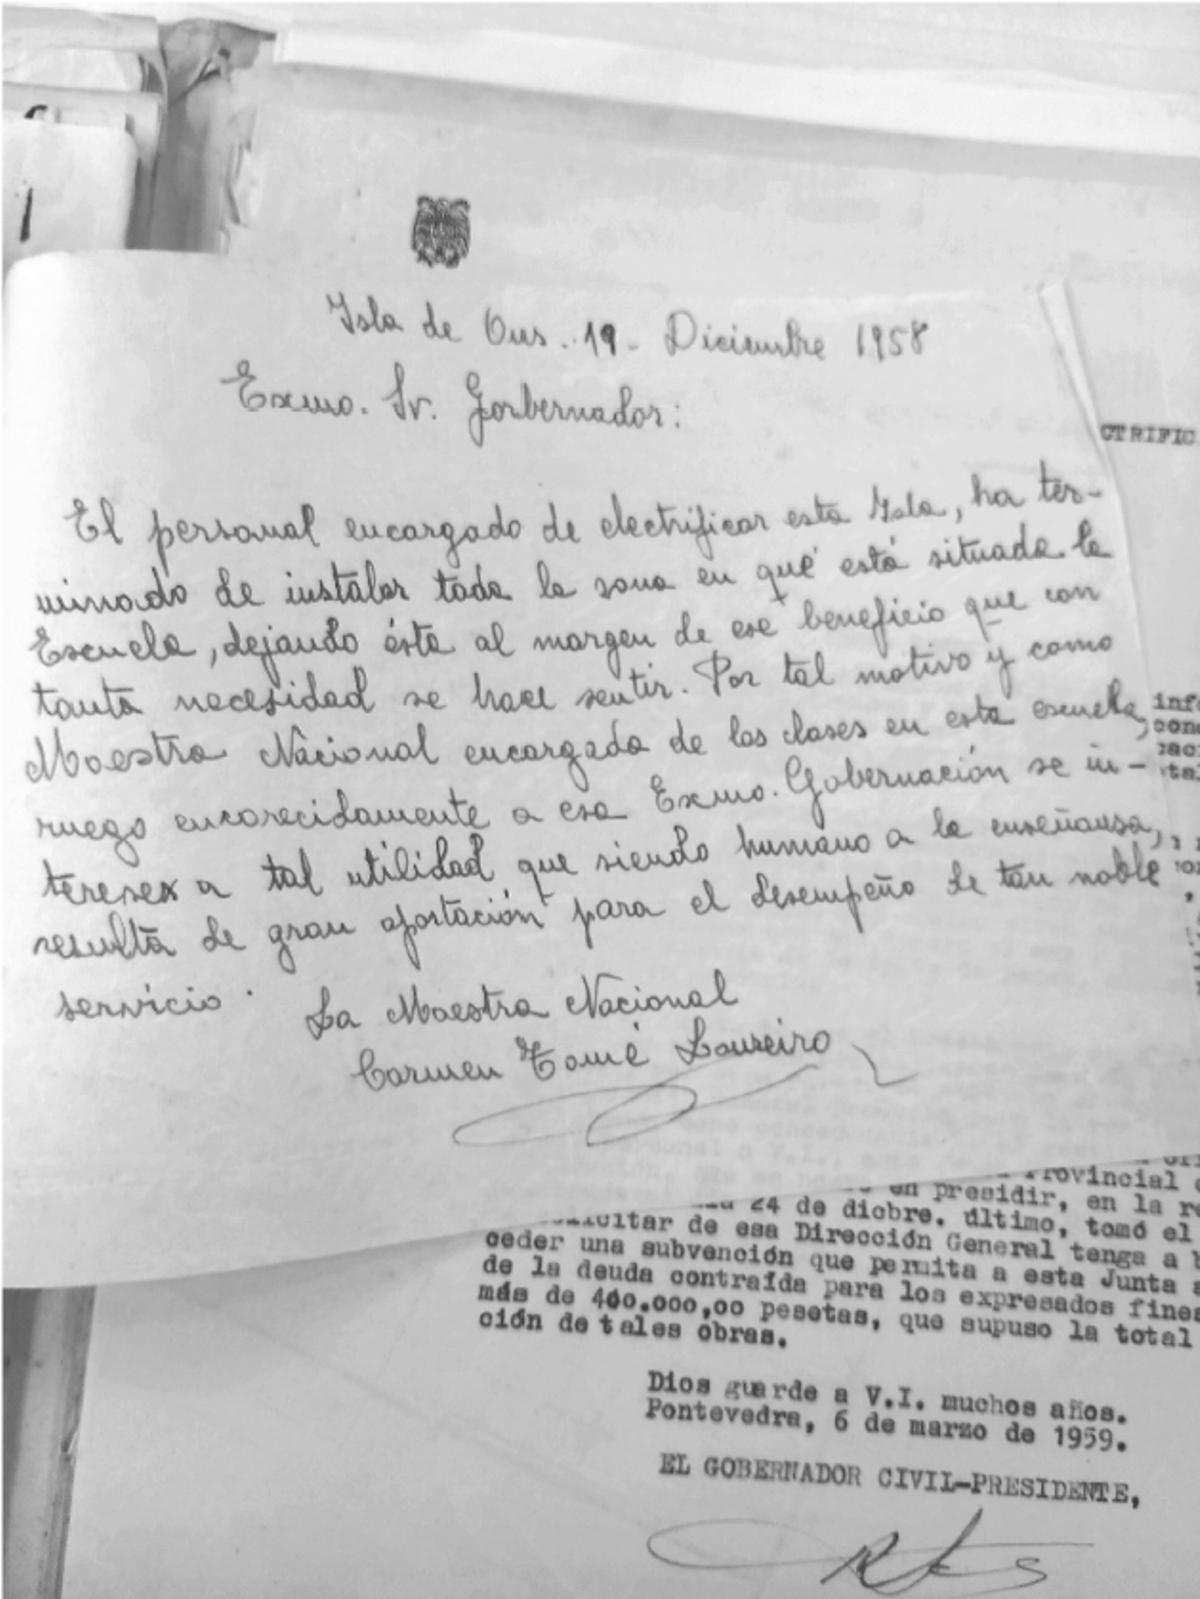 Isla de Ons. 19 - Diciembre 1958
Exmo. Sr. Gorbernador:
El personal encargado de electrificar esta Isla, ha ter-
minado de instalar toda la sona en qué está situada la
Escuela, dejando ésta al margen de ese beneficio que con
tanta necesidad se hace sentir. Por tal motivo y como
Maestra Nacional encargada de las clases en esta escuela,
ruego encarecidamente a esa Exmo. Gobernación se in-
terese a tal utilidad que siendo humano a la enseñansa,
resulta de gran aportación para el desempeño de tan noble
servicio.
La Maestra Nacional
Carmen Tomé Loureiro
CTRIFIC
Provincial
en presidir, en la
24 de dicbre. último, tomó el
solicitar de esa Dirección General tenga a
ceder una subvención que permita a esta Junta
de la deuda contraída para los expresados fines
más de 400.000,00 pesetas, que supuso la total
ción de tales obras.
Dios guarde a V.I. muchos años.
Pontevedra, 6 de marzo de 1959.
EL GOBERNADOR CIVIL-PRESIDENTE,